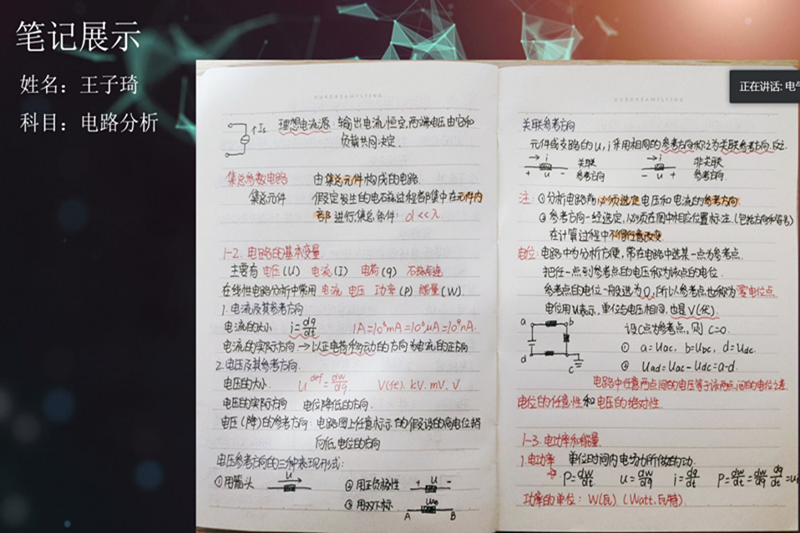 笔记展示
姓名：王子琦
科目：电路分析
正在讲话: 电气
理想电流源 输出电流恒定,两端电压由它和
负载共同决定.
集总参数电路 由集总元件构成的电路
集总元件 假定发生的电磁过程都集中在元件内
部进行,集总条件: d<<λ
1-2. 电路的基本变量
主要有 电压(U) 电流(I) 电荷(q)
在线性电路分析中常用 电流 电压 功率(P) 能量(W).
1.电流及其参考方向
电流的大小 i=dq/dt 1A=10³mA=10⁶μA=10⁹nA.
电流的实际方向→以正电荷移动的方向为电流的正方向
2.电压及其参考方向.
电压的大小 U def= dw/dq V(伏). kV. mV. V
电压的实际方向 电位降低的方向.
电压(降)的参考方向: 电路图上任意标示的假设的高电位指
向低电位的方向
电压参考方向的三种表现形式:
①用箭头 U ②用正负极性 + u -
③用双下标 A B
关联参考方向
元件或支路的u,i采用相同的参考方向称之为关联参考方向,反之
+ u - 关联参考方向 - u + 非关联参考方向
注: ①分析电路前必须选定电压和电流的参考方向
②参考方向一经选定,必须在图中相应位置标注(包括方向和符号)
在计算过程中不得任意改变.
电位: 电路中为分析方便,常在电路中选某一点为参考点.
把任一点到参考点的电压称为该点的电位.
参考点的电位一般选为0,所以参考点也称为零电位点.
电位用u表示,单位与电压相同,也是V(伏).
a b d c
设c点为参考点,则 c=0.
① a=Uac, b=Ubc, d=Udc.
② Uad=Uac-Udc=a-d.
电路中任意两点间的电压等于该两点间的电位之差.
电位的任意性和电压的绝对性.
1-3. 电功率和能量
1.电功率 单位时间内电场力所做的功.
P=dw/dt u=dw/dq i=dq/dt P=dw/dt=dw/dq dq/dt=u
功率的单位: W(瓦) (Watt.瓦特).